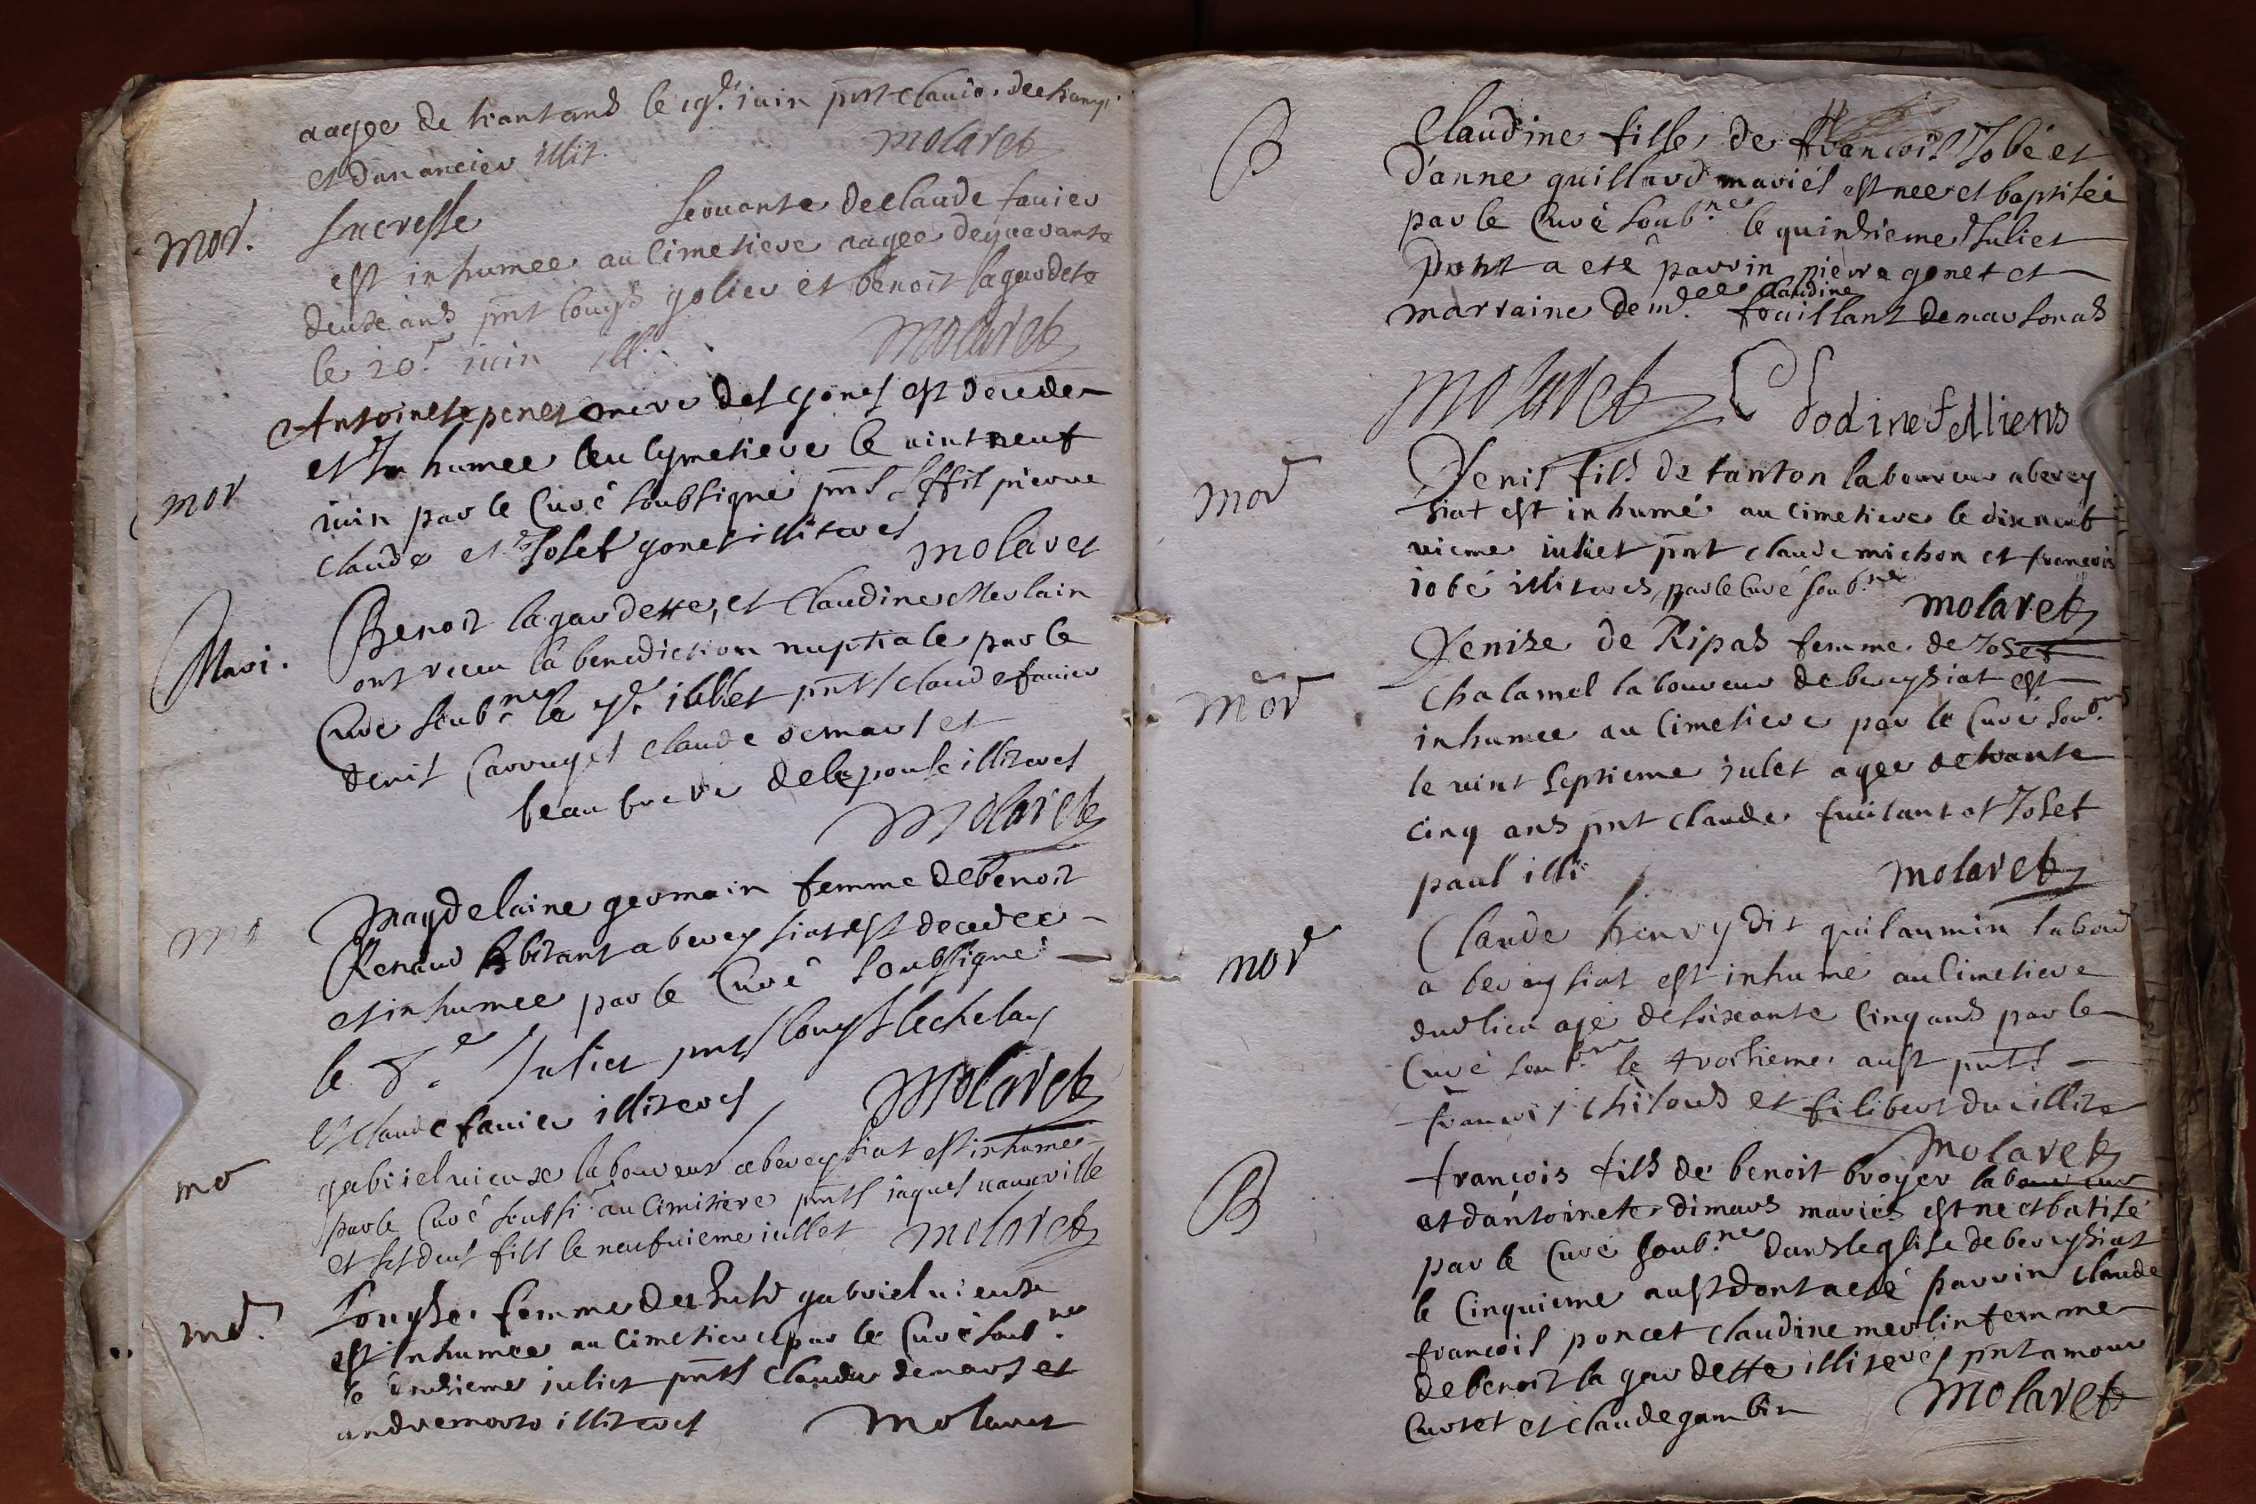 aagee de trant ans le 19.e iuin pnt claude deschamps
et dan ancier illit.
molaret
mor.
Lucresse servante de claude favier
est inhumee au cimetiere aagee de quarante
deuxe ans pnt louys golier et benoit lagardete
le 20.e iuin ill.
molaret
mor
Antoinete penet mere des gonet est decedee
et Inhumee leu cymetiere le vint neuf
iuin par le Curé soubsigné pnts ses fils pierre
claude et Josef gonet illiteres
molaret
Mari.
Benoit lagardette, et Claudine Merlain
ont receu la benediction nuptiale par le
Curé soub.né le 7.e iullet pnts claude favier
denis Carruges claude demars et
beau frere de lepouse illiteres
molaret
mo
Magdelaine germain femme de benoit
Renaud abitant a bereysiat est decedee
et inhumee par le Curé soubsigné
le 8.e Juliet pnts louys lechelay
et claude favier illiteres
molaret
mo
gabriel vieuxe laboureur a bereysiat est inhume
par le Curé soubsi. au cimitiere pnts iaques vauxville
et ses deus fils le neufvieme iullet molaret
mor.
Louyse femme de gabriel vieuse
est inhumee au cimetiere par le Curé soub.né
le onzieme iuliet pnts Claude demars et
andre morto illiteres molaret
B
Claudine fille de francois Jobé et
d'anne guillard mariés est nee et baptisée
par le Curé soub.né le quinzieme Juliet
dont a eté parrin pierre gonet et
marraine dem.elle Claudine fraillant de marsonas
molaret Jodine felliens
mor
Denis fils de tanton laboureur a berey
siat est inhumé au cimetiere le diseneuf
vieme iuliet pnt claude michon et francois
iobé illiteres, par le Curé soub.né
molaret
mor
Denise de Ripas femme de Josef
chalamel laboureur de bereysiat est
inhumee au cimetiere par le Curé soub.né
le vint septieme iulet agee de trante
cinq ans pnt claude fuilant et Josef
paul illi
molaret
mor
Claude henry dit guilaumin labour
a bereysiat est inhumé au cimetiere
dud lieu agé de soixante Cinq ans par le
Curé soub.né le troisieme aust pnts
francois chilous et filibert du illite
molaret
B
francois fils de benoit broyer laboureur
et d'antoinete dimars mariés est né et batisé
par le Curé soub.né dans leglise de bereysiat
le Cinquieme aust dont a eté parrin claude
francois poncet claudine merlin femme
de benoit la gardette illiterés pnt amour
Curtet et claude gambin molaret